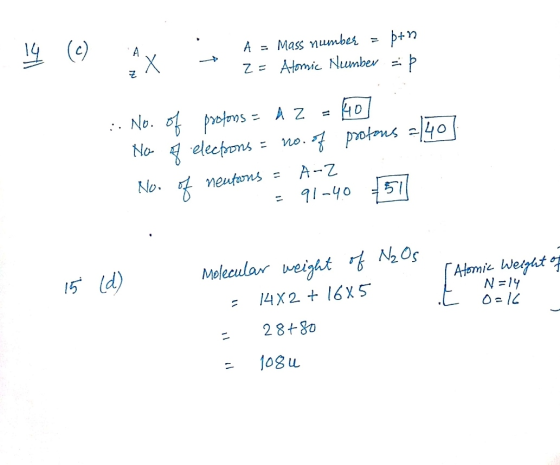 14 (c) A Z X → A = Mass number = p+n
Z = Atomic Number = p
∴ No. of protons = A Z = 40
No of electrons = no. of protons = 40
No. of neutrons = A-Z
= 91-40 = 51
15 (d) Molecular weight of N2O5 [Atomic Weight of
= 14X2 + 16X5 N = 14
= 28+80 O = 16
= 108u